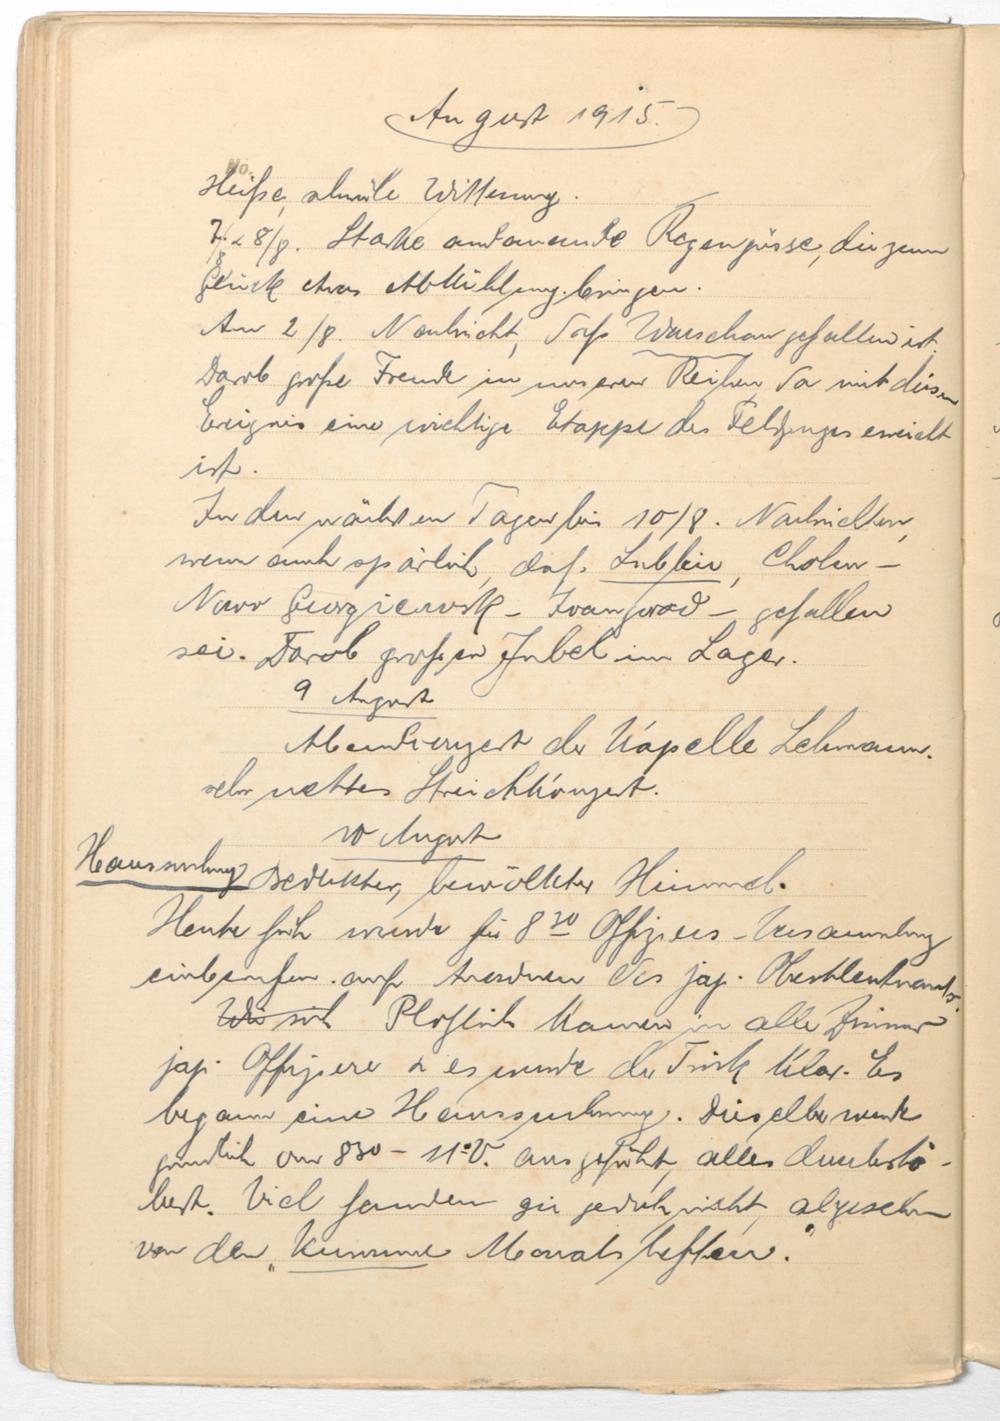 August 1915.
No.
Heiße, schwüle Witterung.
7. & 8/8. Starke andauernde Regengüsse, die zum
Glück etwas Abkühlung bringen.
Am 2/8. Nachricht, daß Warschau gefallen ist.
Darob große Freude in unseren Reihen da mit diesem
Ereignis eine wichtige Etappe des Feldzuges erreicht
ist.
In den nächsten Tagen bis 10/8. Nachrichten,
wenn auch spärlich, daß Lublin, Cholm –
Nowo Georgiewsk – Ivangorod – gefallen
sei. Darob großer Jubel im Lager.
9 August
Abendkonzert der Kapelle Lehmann.
sehr nettes Streichkonzert.
10 August
Haussuchung Bedekter, bewölkter Himmel.
Heute früh wurde für 8 30 Offiziers-Versammlung
einberufen auf Anordnen des jap. Oberstleutnants.
Wir sich Plötzlich kamen in alle Zimmer
jap. Offiziere & es wurde der Trick klar. Es
begann eine Haussuchung. Dieselbe wurde
gründlich von 830 – 11 V. ausgeführt, alles durchstö-
bert. Viel fanden sie jedoch nicht, abgesehen
von den „Kumume Monatsheften."